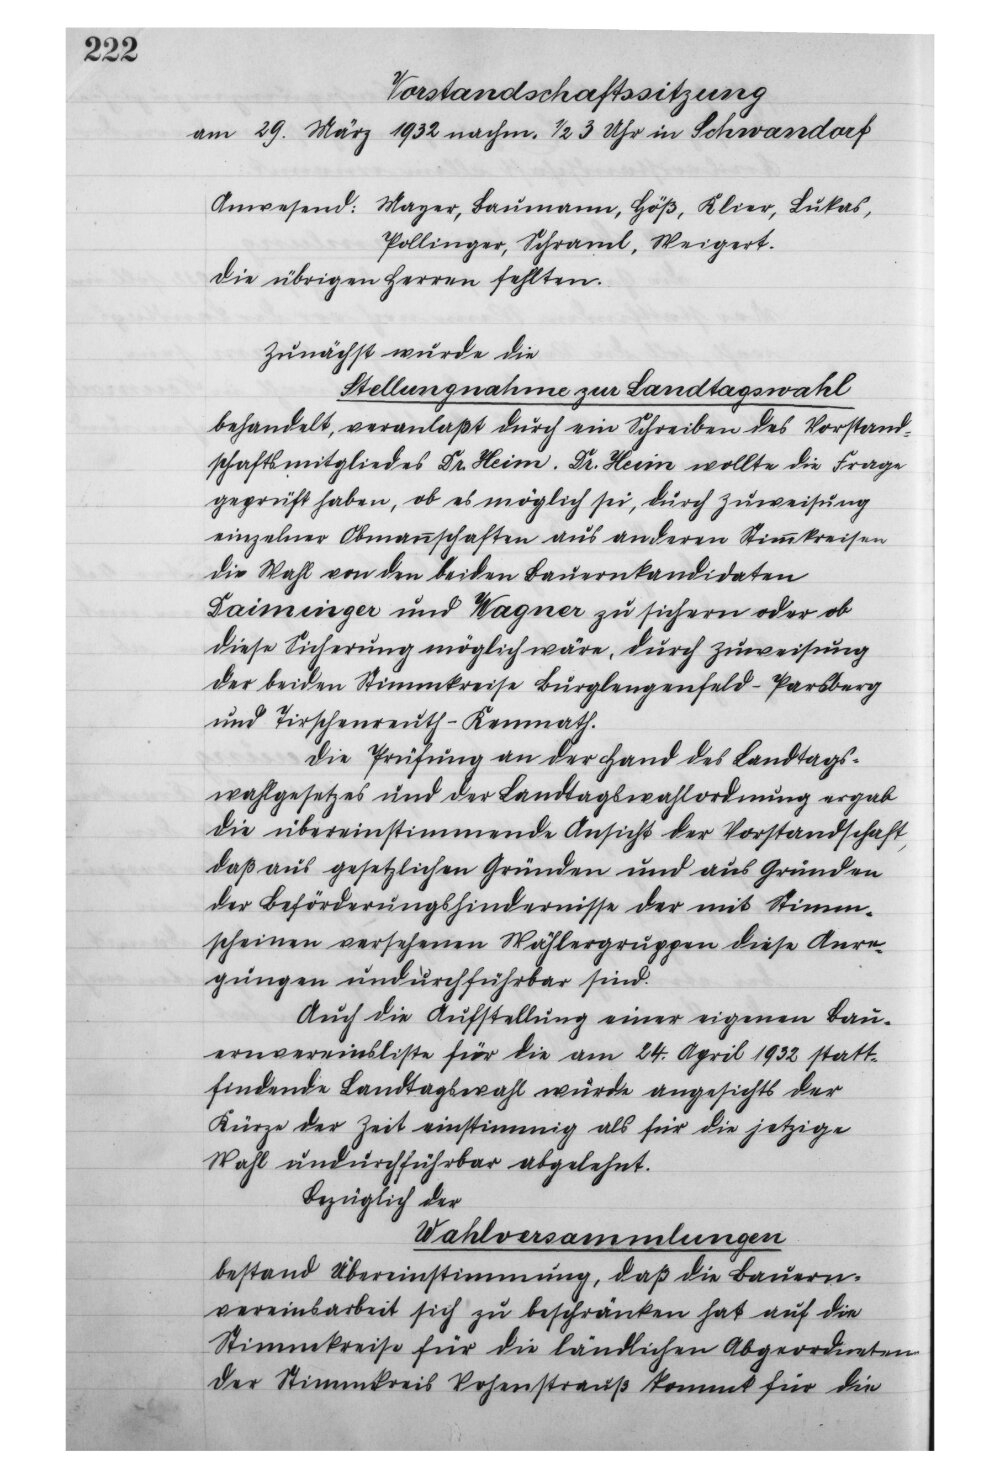 222
Vorstandschaftssitzung
am 29. März 1932 nachm. ½ 3 Uhr in Schwandorf
Anwesend: Mayer, Baumann, Höß, Klier, Lukas,
Pollinger, Schraml, Weigert.
Die übrigen Herren fehlten.
Zunächst wurde die
Stellungnahme zur Landtagswahl
behandelt, veranlaßt durch ein Schreiben des Vorstand-
schaftsmitgliedes Dr. Heim. Dr. Heim wollte die Frage
geprüft haben, ob es möglich sei, durch Zuweisung
einzelner Obmannschaften aus anderen Stimmkreisen
die Wahl von den beiden Bauernkandidaten
Daiminger und Wagner zu sichern oder ob
diese Sicherung möglich wäre, durch Zuweisung
der beiden Stimmkreise Burglengenfeld-Parsberg
und Tirschenreuth-Kemnath.
Die Prüfung an der Hand des Landtags-
wahlgesetzes und der Landtagswahlordnung ergab
die übereinstimmende Ansicht der Vorstandschaft,
daß aus gesetzlichen Gründen und aus Gründen
der Beförderungshindernisse der mit Stimm-
scheinen versehenen Wählergruppen diese Anre-
gungen undurchführbar sind.
Auch die Aufstellung einer eigenen Bau-
ernvereinsliste für die am 24. April 1932 statt-
findende Landtagswahl wurde angesichts der
Kürze der Zeit einstimmig als für die jetzige
Wahl undurchführbar abgelehnt.
Bezüglich der
Wahlversammlungen
bestand Übereinstimmung, daß die Bauern-
vereinsarbeit sich zu beschränken hat auf die
Stimmkreise für die ländlichen Abgeordneten
der Stimmkreis Vohenstrauß kommt für die